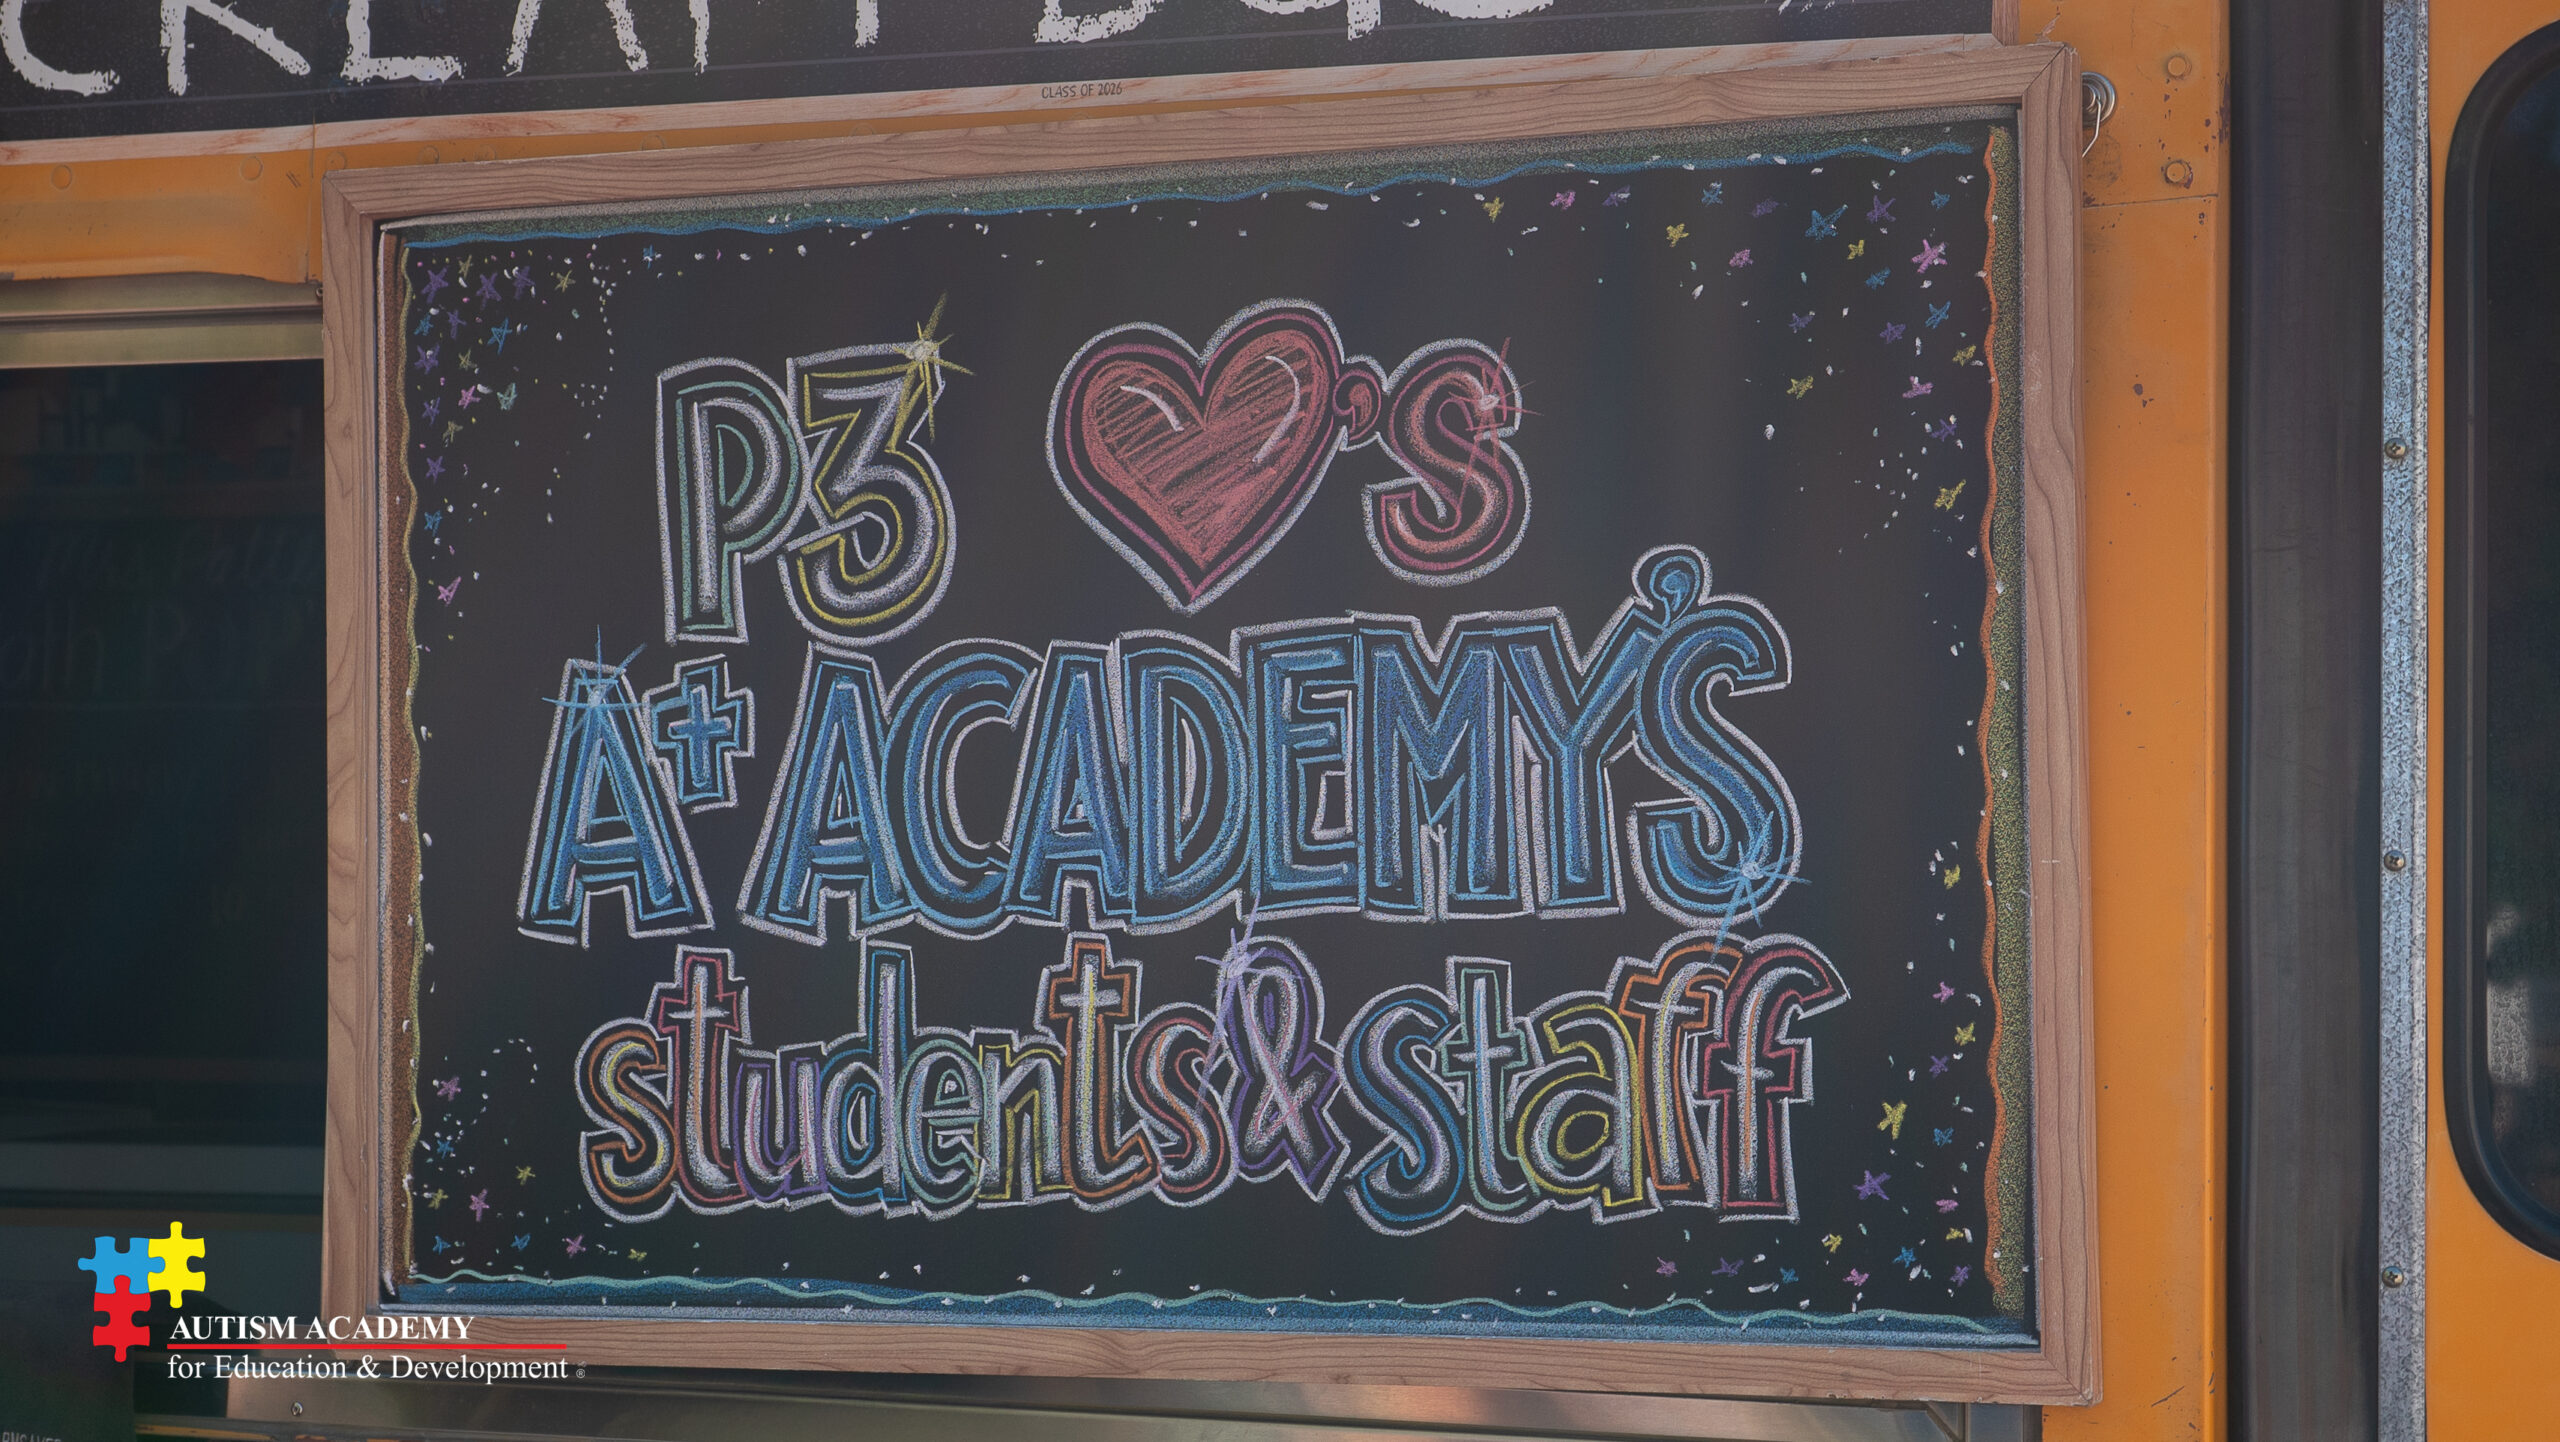 CLASS OF 2026
P3 ❤'s
A+ ACADEMY'S
students & staff
AUTISM ACADEMY
for Education & Development ®